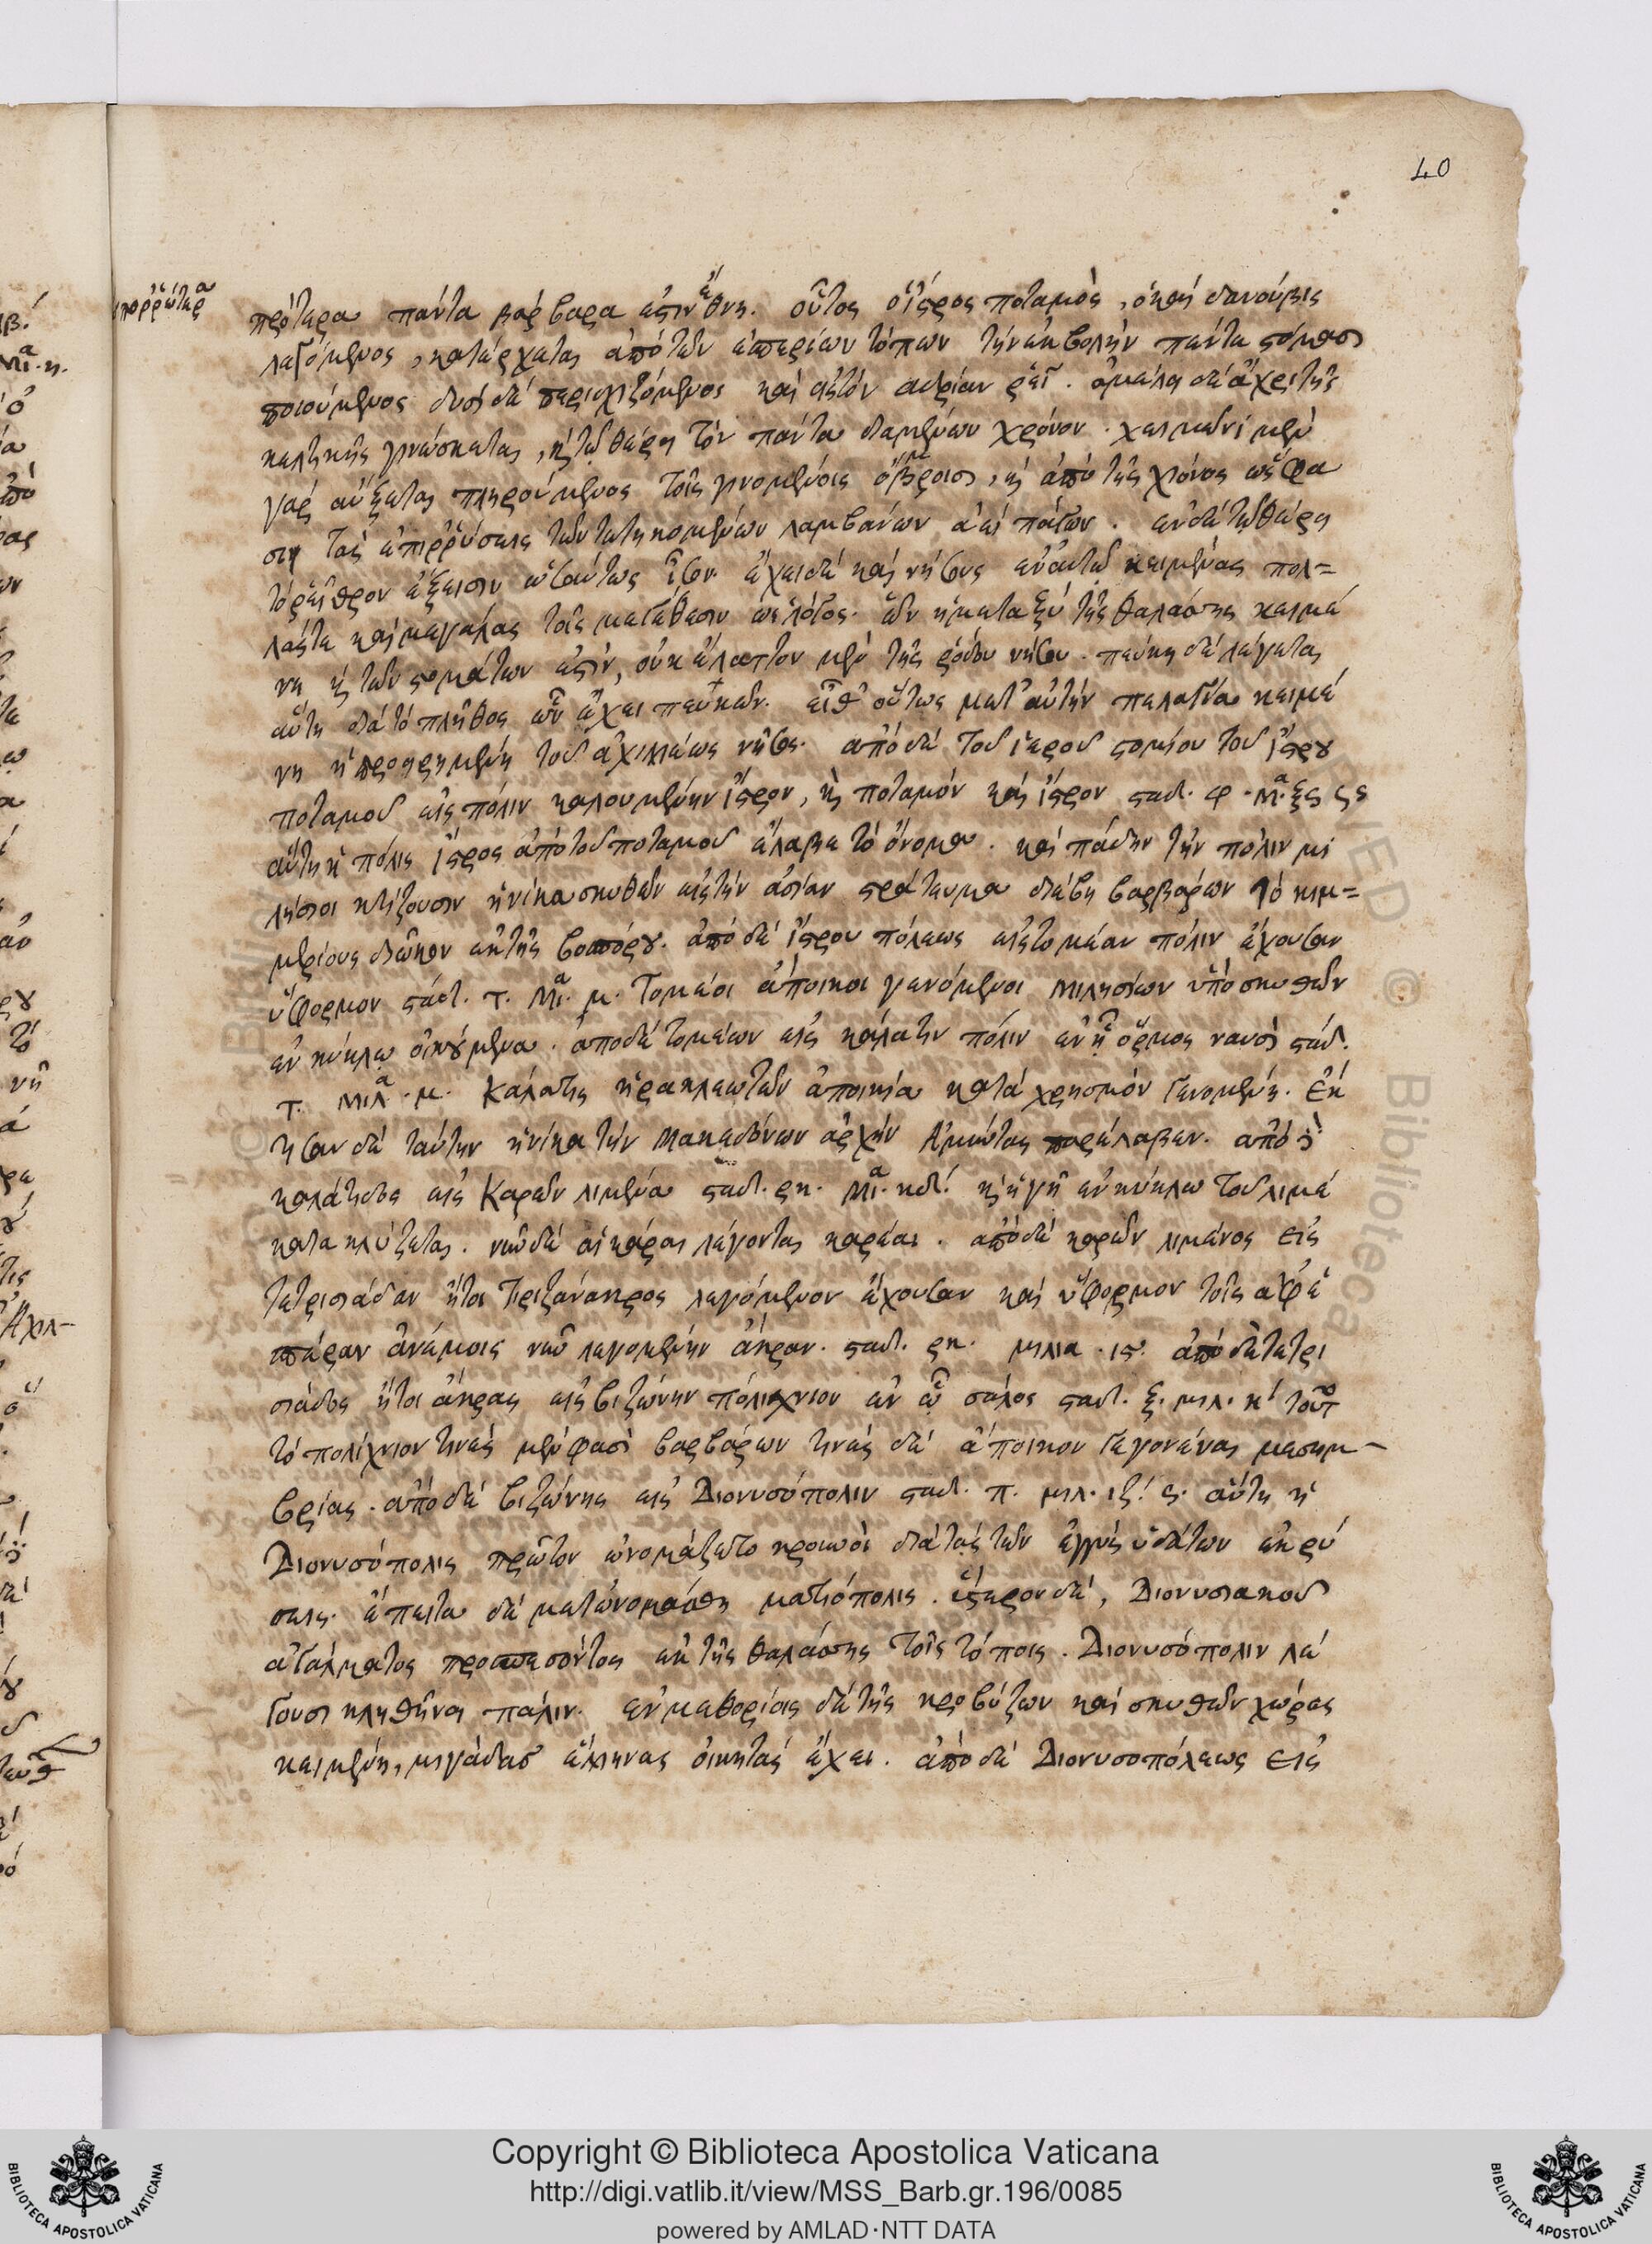 40
πρότερα πάντα βάρβαρα ἐστὶν ἔθνη. οὗτος ὁ ἴστρος ποταμὸς, ὁ καὶ δανούβις
λεγόμενος, κατέρχεται ἀπὸ τῶν ἑσπερίων τόπων τὴν ἐκβολὴν πέντε στόμασι
ποιούμενος δυσὶ δὲ περισχιζόμενος καὶ εἰς τὸν ἀδρίαν ῥεῖ. ἀμέλει δὲ ἄχρι τῆς
κελτικῆς γινώσκεται, κ τῷ θέρει τὸν πάντα διαμένων χρόνον. χειμῶνι μὲν
γὰρ αὔξεται πληρούμενος τοῖς γινομένοις ὄμβροισι, κ ἀπὸ τῆς χιόνος ὥς φα
σιν τὰς ἐπιρρύσεις τῶν τε τηκομένων λαμβάνων ἀεὶ πάγων. ἐν δὲ τῷ θέρει
τὸ ῥεῖθρον ἐξίεισιν ὡσαύτως ἴσον. ἔχει δὲ καὶ νήσους ἐν αὐτῷ κειμένας πολ=
λάς τε καὶ μεγάλας τοῖς μεγέθεσιν ὡς λόγος. ὧν ἡ μεταξὺ τῆς θαλάσσης κειμέ
νη κ τῶν στομάτων ἐστὶν, οὐκ ἔλαττον μὲν τῆς ῥόδου νήσου. πεύκη δὲ λέγεται
αὕτη διὰ τὸ πλῆθος ὧν ἔχει πευκῶν. εἶθ' οὕτως μετ' αὐτὴν πελαγία κειμέ
νη ἡ προειρημένη τοῦ ἀχιλλέως νῆσος. ἀπὸ δὲ τοῦ ἱεροῦ στομίου τοῦ ἴστρου
ποταμοῦ εἰς πόλιν καλουμένην ἴστρον, κ ποταμὸν καὶ ἴστρον σταδ. φ. μ. ξϛ ϛς
αὕτη ἡ πόλις ἴστρος ἀπὸ τοῦ ποταμοῦ ἔλαβε τὸ ὄνομα. καὶ τὴν πόλιν μι
λήσιοι κτίζουσιν ἡνίκα σκυθῶν εἰς τὴν ἀσίαν στράτευμα διέβη βαρβάρων τὸ κιμ=
μερίους διῶκον ἐκ τῆς βοσπόρου. ἀπὸ δὲ ἴστρου πόλεως εἰς τομέαν πόλιν ἔχουσαν
ὕφορμον στάδ. τ. μι. μ. Τομέοι ἄποικοι γενόμενοι μιλησίων ὑπὸ σκυθῶν
ἐν κύκλῳ οἰκούμενα. ἀπὸ δὲ τομέων εἰς κάλατιν πόλιν ἐν ᾗ ὅρμος ναυσὶ στάδ.
τ. μιλ. μ. Κάλατις ἡρακλεωτῶν ἀποικία κατὰ χρησμὸν γενομένη. ἔκ
τισαν δὲ ταύτην ἡνίκα τὴν μακεδόνων ἀρχὴν ἀμύντας παρέλαβεν. ἀπὸ δ
καλάτιδος εἰς Καρῶν λιμένα σταδ. ρκ. μι. κδ. κ ἡ γῆ ἐν κύκλῳ τοῦ λιμέ
κατακλύζεται. νῦν δὲ αἱ κάραι λέγονται καρέαι. ἀπὸ δὲ καρῶν λιμένος εἰς
τετρισιάδαν ἤτοι τιριζάνακρος λεγόμενον ἔχουσαν καὶ ὕφορμον τοῖς ἀφ' ἑ
σπέραν ἀνέμοις νῦν λεγομένην ἄκραν. σταδ. ρκ. μιλια. ιϛ. ἀπὸ δὲ τετρι
σιάδος ἤτοι ἄκρας εἰς βιζώνην πολίχνιον ἐν ᾧ σάλος σταδ. ξ. μιλ. η τοῦτ
τὸ πολίχνιον τινὲς μὲν φασὶ βαρβάρων τινὲς δὲ ἄποικον γεγονέναι μεσημ-
βρίας. ἀπὸ δὲ βιζώνης εἰς Διονυσόπολιν σταδ. π. μιλ. ιζ. ς. αὕτη ἡ
Διονυσόπολις πρῶτον ὠνομάζετο κρουνοὶ διὰ τὰς τῶν ἐγγὺς ὑδάτων ἐκρύ
σεις. ἔπειτα δὲ μετωνομάσθη ματιόπολις. ὕστερον δὲ, Διονυσιακοῦ
ἀγάλματος προσπεσόντος ἐκ τῆς θαλάσσης τοῖς τόποις. Διονυσόπολιν λέ
γουσι κληθῆναι πάλιν. ἐν μεθορίαις δὲ τῆς κροβύζων καὶ σκυθῶν χώρας
κειμένη, μιγάδας ἕλληνας οἰκητὰς ἔχει. ἀπὸ δὲ Διονυσοπόλεως εἰς
Copyright © Biblioteca Apostolica Vaticana
http://digi.vatlib.it/view/MSS_Barb.gr.196/0085
powered by AMLAD·NTT DATA
BIBLIOTECA APOSTOLICA VATICANA
BIBLIOTECA APOSTOLICA VATICANA